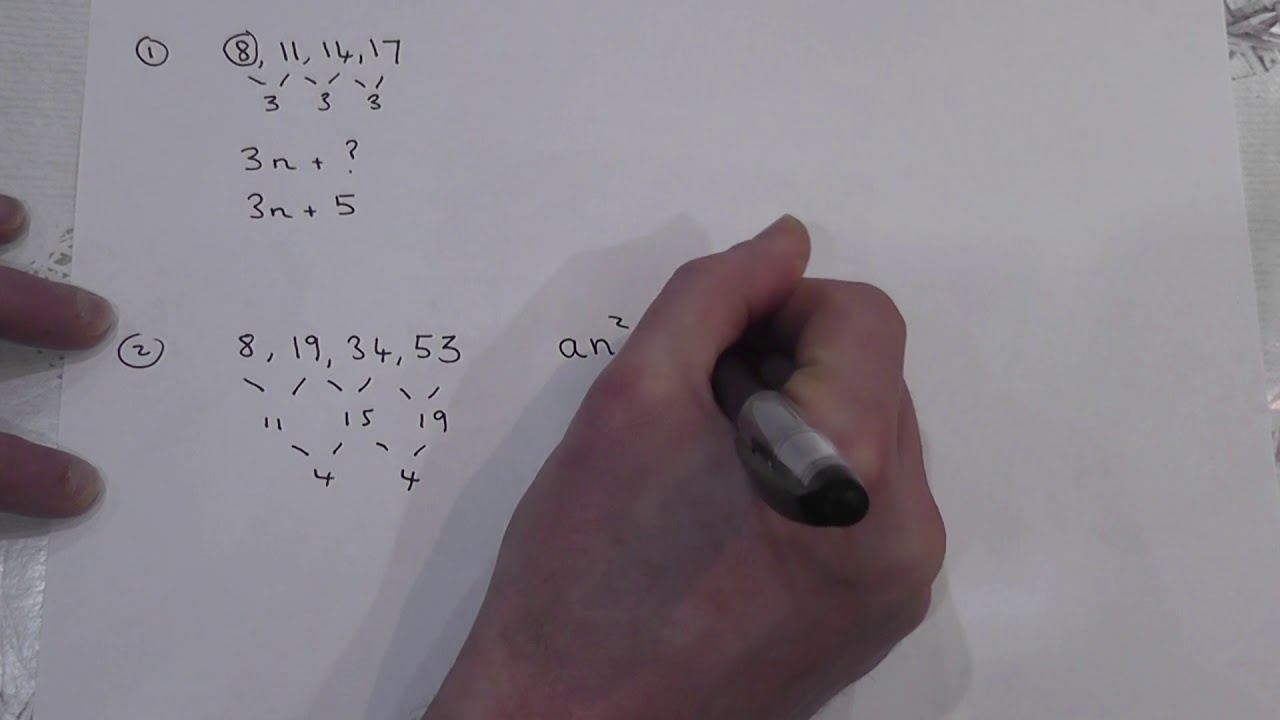 ① ⑧, 11, 14, 17
3 3 3
3n + ?
3n + 5
② 8, 19, 34, 53 an²
11 15 19
4 4